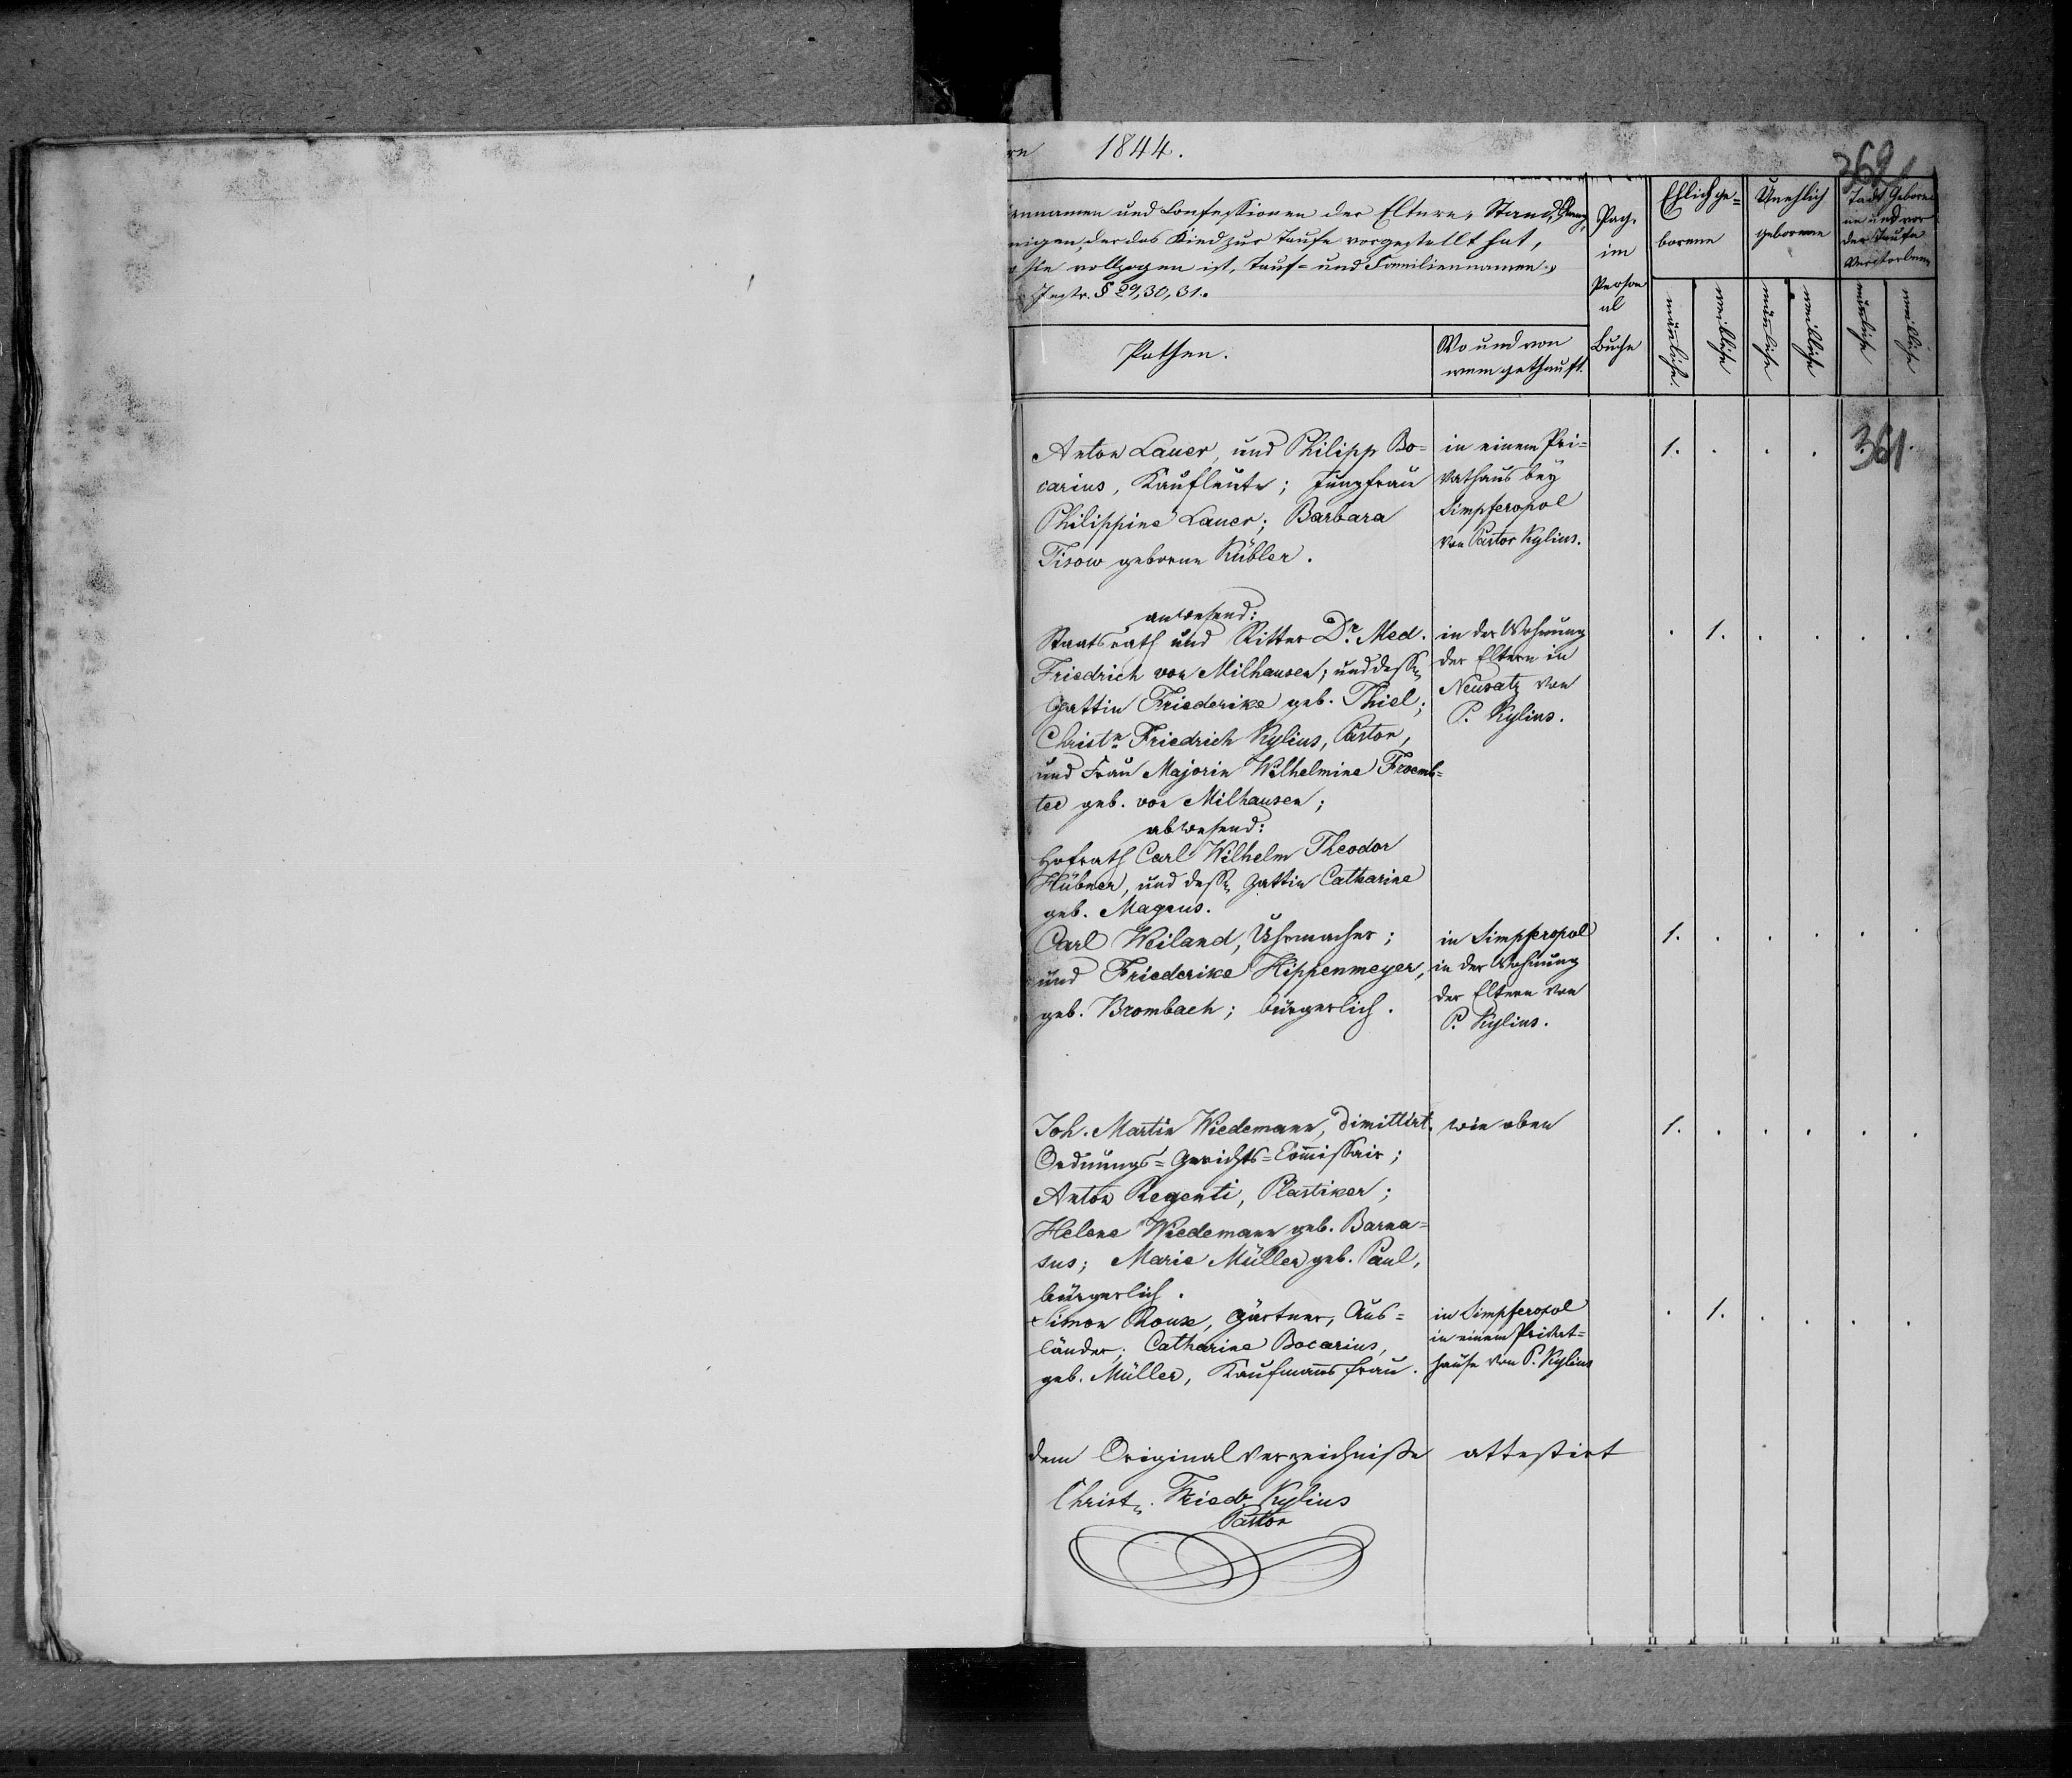 1844.
369
ennamen und Confessionen der Eltern, Stand,
nigen, der das Kind zur Taufe vorgestellt hat,
sie vollzogen ist, Tauf- und Familiennamen.
Instr. § 29, 30, 31.
Pathen.
Wo und von
wem gethauft.
Pag.
im
Person
al
Buche
Ehlich ge=
borene
Unehlich
geborene
Todt Gebore
ne und vor
der Taufe
Verstorbene
männliche.
weibliche
männliche
weibliche
männliche
weibliche
Anton Lauer, und Philipp Bo=
carius, Kaufleute; Jungfrau
Philippine Lauer; Barbara
Tisow geborne Kübler.
in einem Pri=
vathaus bey
Simpferopol
von Pastor Kylius.
1. . . . 361.
anwesend:
Staatsrath und Ritter Dr. Med.
Friedrich von Milhausen; und dessen
Gattin Friederike geb. Thiel;
Christn Friedrich Kylius, Pastor,
und Frau Majorin Wilhelmine Froemb=
ter geb. von Milhausen;
abwesend:
Hofrath Carl Wilhelm Theodor
Hübner, und dessn Gattin Catharine
geb. Magnus.
in der Wohnung
der Eltern in
Neusatz von
P. Kylius.
. 1. . . . .
Carl Weiland, Uhrmacher;
und Friederike Hippenmeyer,
geb. Brombach; bürgerlich.
in Simpferopol
in der Wohnung
der Eltern von
P. Kylius.
1. . . . . .
Joh. Martin Wiedemann, dimittirt.
Ordnungs=Gerichts=Commissair;
Anton Regenti, Plastiker;
Helene Wiedemann geb. Barna=
sus; Marie Müller geb. Paul,
bürgerlich.
wie oben
1. . . . . .
Simon Roux, Gärtner, Aus=
länder; Catharine Bocarius,
geb. Müller, Kaufmannsfrau.
in Simpferopol
in einem Privat=
hause von P. Kylius
. 1. . . . .
dem Originalverzeichnisse attestirt
Christn. Friedr. Kylius
Pastor